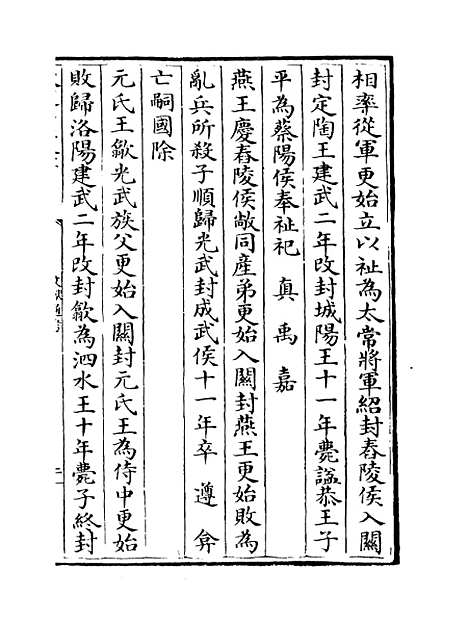 相率從軍更始立以祉為太常將軍紹封舂陵侯入關
封定陶王建武二年改封城陽王十一年薨諡恭王子
平為蔡陽侯奉祉祀 真 禹 嘉
燕王慶舂陵侯敞同産弟更始入關封燕王更始敗為
亂兵所殺子順歸光武封成武侯十一年卒 遵 弇
亡嗣國除
元氏王歙光武族父更始入關封元氏王為侍中更始
敗歸洛陽建武二年改封歙為泗水王十年薨子終封